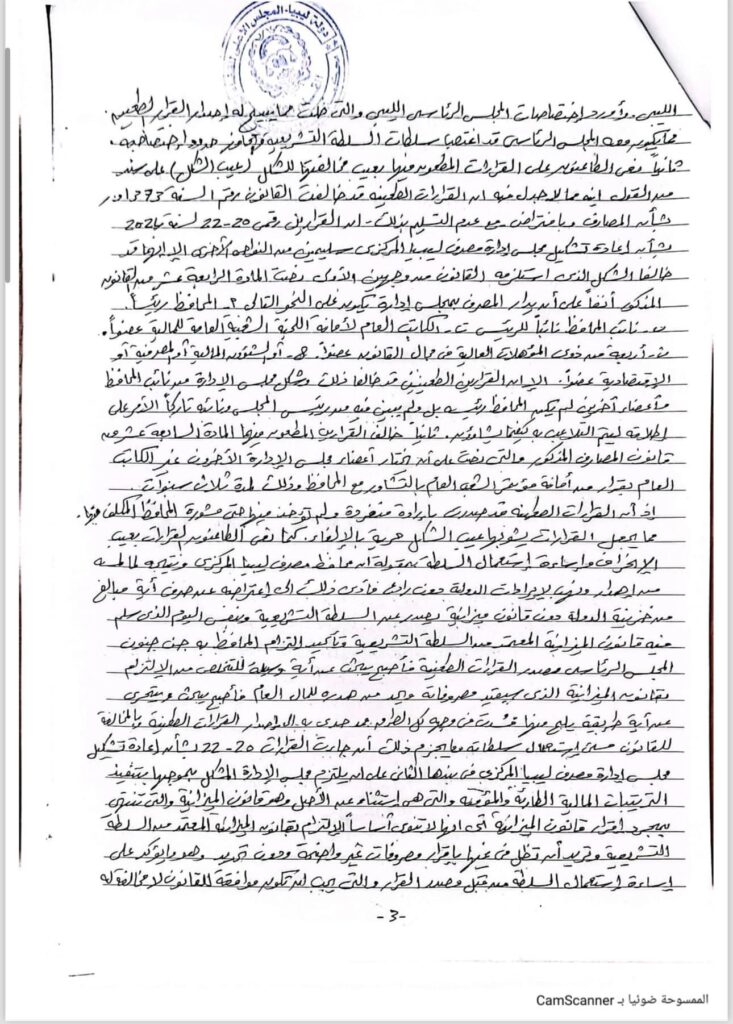 دولة ليبيا - المجلس الأعلى
الليبي وأورد اختصاصات المجلس الرئاسي الليبي والتي خلت مما يبيح له إصدار القرار الطعين
مما يكون معه المجلس الرئاسي قد اغتصب سلطات السلطة التشريعية وتجاوز حدود اختصاصه .
ثانياً نعى الطاعنون على القرارات المطعون فيها بعيب مخالفتها للشكل (عيب الشكل) على سند
من القول إنه مما لا جدل فيه ان القرارات الطعينة قد خالفت القانون رقم لسنة 1373 و.ر
بشأن المصارف وبافتراض - مع عدم التسليم بذلك - ان القرارين رقمي 20-22 لسنة 2024
بشأن إعادة تشكيل مجلس إدارة مصرف ليبيا المركزي سليمين من النواحي الأخرى إلا إنهما قد
خالفا الشكل الذي استلزمه القانون من وجهين الأول نصت المادة الرابعة عشر من القانون
المذكور آنفاً على أن يدار المصرف بمجلس إدارة يكون على النحو التالي أ- المحافظ رئيساً .
ب- نائب المحافظ نائباً للرئيس ت- الكاتب العام لأمانة اللجنة الشعبية العامة للمالية عضواً .
ث- أربعة من ذوي المؤهلات العالية في مجال القانون عضواً. ج- أو الشؤون المالية أو المصرفية أو
الاقتصادية عضواً. إلا ان القرارين الطعينين قد خالفا ذلك وشكل مجلس الإدارة من نائب المحافظ
وأعضاء آخرين لم يكن المحافظ رئيسه بل ولم يبين فيه من رئيس المجلس ونائبه تاركاً الأمر على
إطلاقه ليتم التلاعب به كيفما يشاؤون . ثانياً خالف القرارين المطعون فيهما المادة السابعة عشر من
قانون المصارف المذكور والتي نصت على أن يختار أعضاء مجلس الإدارة الآخرون غير الكاتب
العام بقرار من أمانة مؤتمر الشعب العام بالتشاور مع المحافظ وذلك لمدة ثلاث سنوات .
إذ أن القرارات الطعينة قد صدرت بإرادة منفردة ولم تؤخذ فيها حتى مشورة المحافظ المكلف فيها .
مما يجعل القرارات يشوبها عيب الشكل حرية بالإلغاء . كما نعى الطاعنون القرارات بعيب
الانحراف وإساءة استعمال السلطة بمقولة أن محافظ مصرف ليبيا المركزي ونتيجة لما لمسه
من إهدار ونهب لإيرادات الدولة دون رادع فأدى ذلك إلى اعتراضه عن صرف أية مبالغ
من خزينة الدولة دون قانون ميزانية يصدر عن السلطة التشريعية وبنفس اليوم الذي سلم
فيه قانون الميزانية المعتمد من السلطة التشريعية وتأكيد التزام المحافظ به جن جنون
المجلس الرئاسي مصدر القرارات الطعينة فأصبح يبحث عن أية وسيلة للتخلص من الالتزام
بقانون الميزانية الذي سيقيد مصروفاته ويحد من هدره للمال العام فأصبح يبحث ويتحرى
عن أية طريقة يلج منها فسدت في وجهه كل الطرق مما حدى به إلا إصدار القرارات الطعينة وبالمخالفة
للقانون مسيئ استعمال سلطاته ومما يجزم ذلك أن جاءت القرارات 20-22 بشأن إعادة تشكيل
مجلس إدارة مصرف ليبيا المركزي في بندها الثاني على ان يلتزم مجلس الإدارة المشكل بموجبها بتنفيذ
الترتيبات المالية الطارئة والمؤقتة والتي هي استثناء عن الأصل وهو قانون الميزانية والتي تنتهي
بمجرد إقرار قانون الميزانية أي انها لا تنوي أساساً الالتزام بقانون الميزانية المعتمد من السلطة
التشريعية وتريد أن تظل في غيها بإقرار مصروفات غير واضحة ودون تحديد وهو ما يؤكد على
إساءة استعمال السلطة من قبل مصدر القرار والتي يجب ان تكون موافقة للقانون لا مخالفة له
-3-
الممسوحة ضوئيا بـ CamScanner